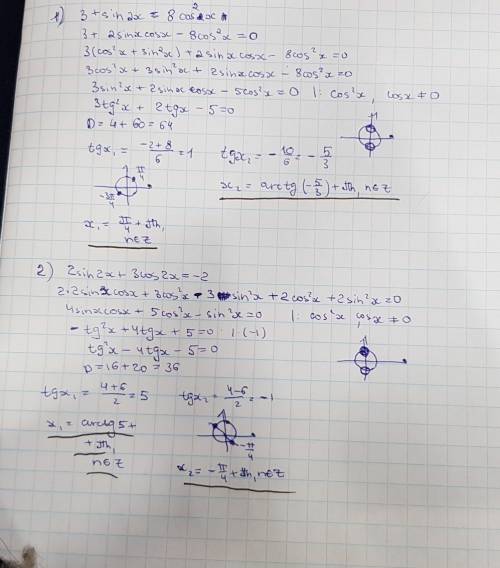 1) 3 + sin2x = 8cos²x
3 + 2sinxcosx - 8cos²x = 0
3(cos²x + sin²x) + 2sinxcosx - 8cos²x = 0
3cos²x + 3sin²x + 2sinxcosx - 8cos²x = 0
3sin²x + 2sinxcosx - 5cos²x = 0 |: cos²x, cosx ≠ 0
3tg²x + 2tgx - 5 = 0
D = 4 + 60 = 64
tgx₁ = (-2+8)/6 = 1 tgx₂ = -10/6 = -5/3
π/4
-3π/4
x₂ = arctg(-5/3) + πn, n∈Z
x₁ = π/4 + πn,
n∈Z
2) 2sin2x + 3cos2x = -2
2·2sinxcosx + 3cos²x - 3sin²x + 2cos²x + 2sin²x = 0
4sinxcosx + 5cos²x - sin²x = 0 |: cos²x, cosx ≠ 0
- tg²x + 4tgx + 5 = 0 |·(-1)
tg²x - 4tgx - 5 = 0
D = 16 + 20 = 36
tgx₁ = (4+6)/2 = 5 tgx₂ = (4-6)/2 = -1
x₁ = arctg5 +
+ πn,
n∈Z
-π/4
x₂ = -π/4 + πn, n∈Z